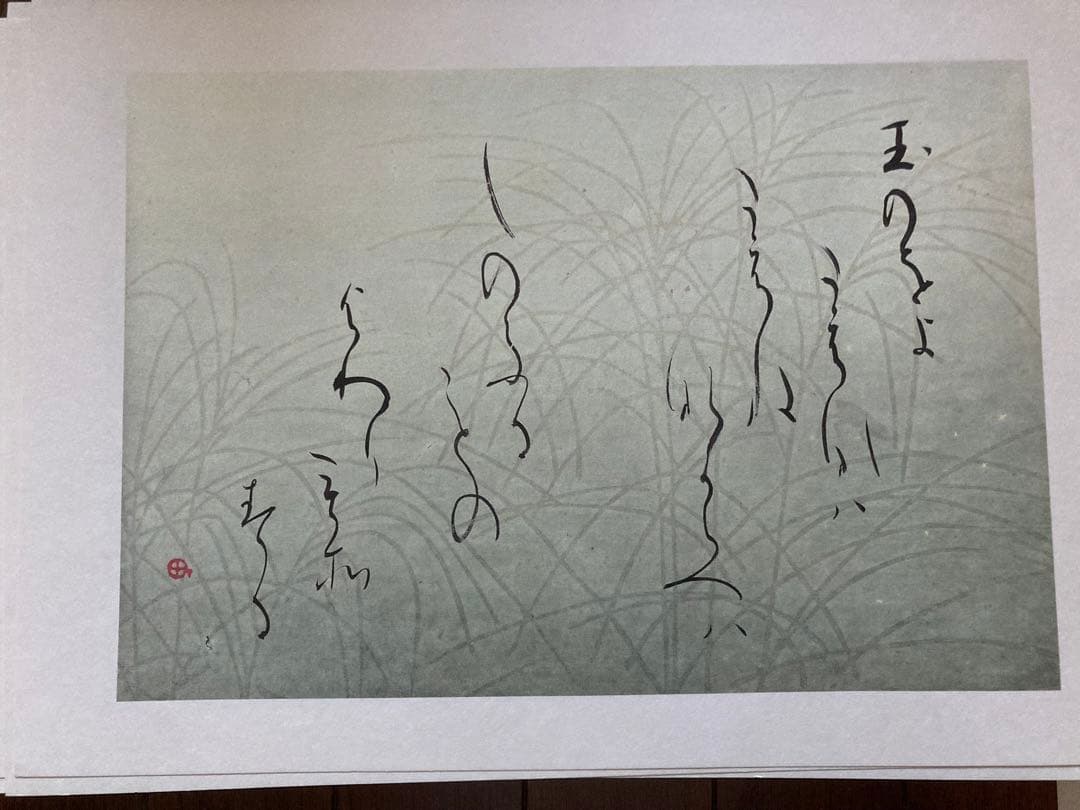 玉のをよ
たえなハ
たえね
なからへハ
しのふる
ことの
よわり
もそ
する